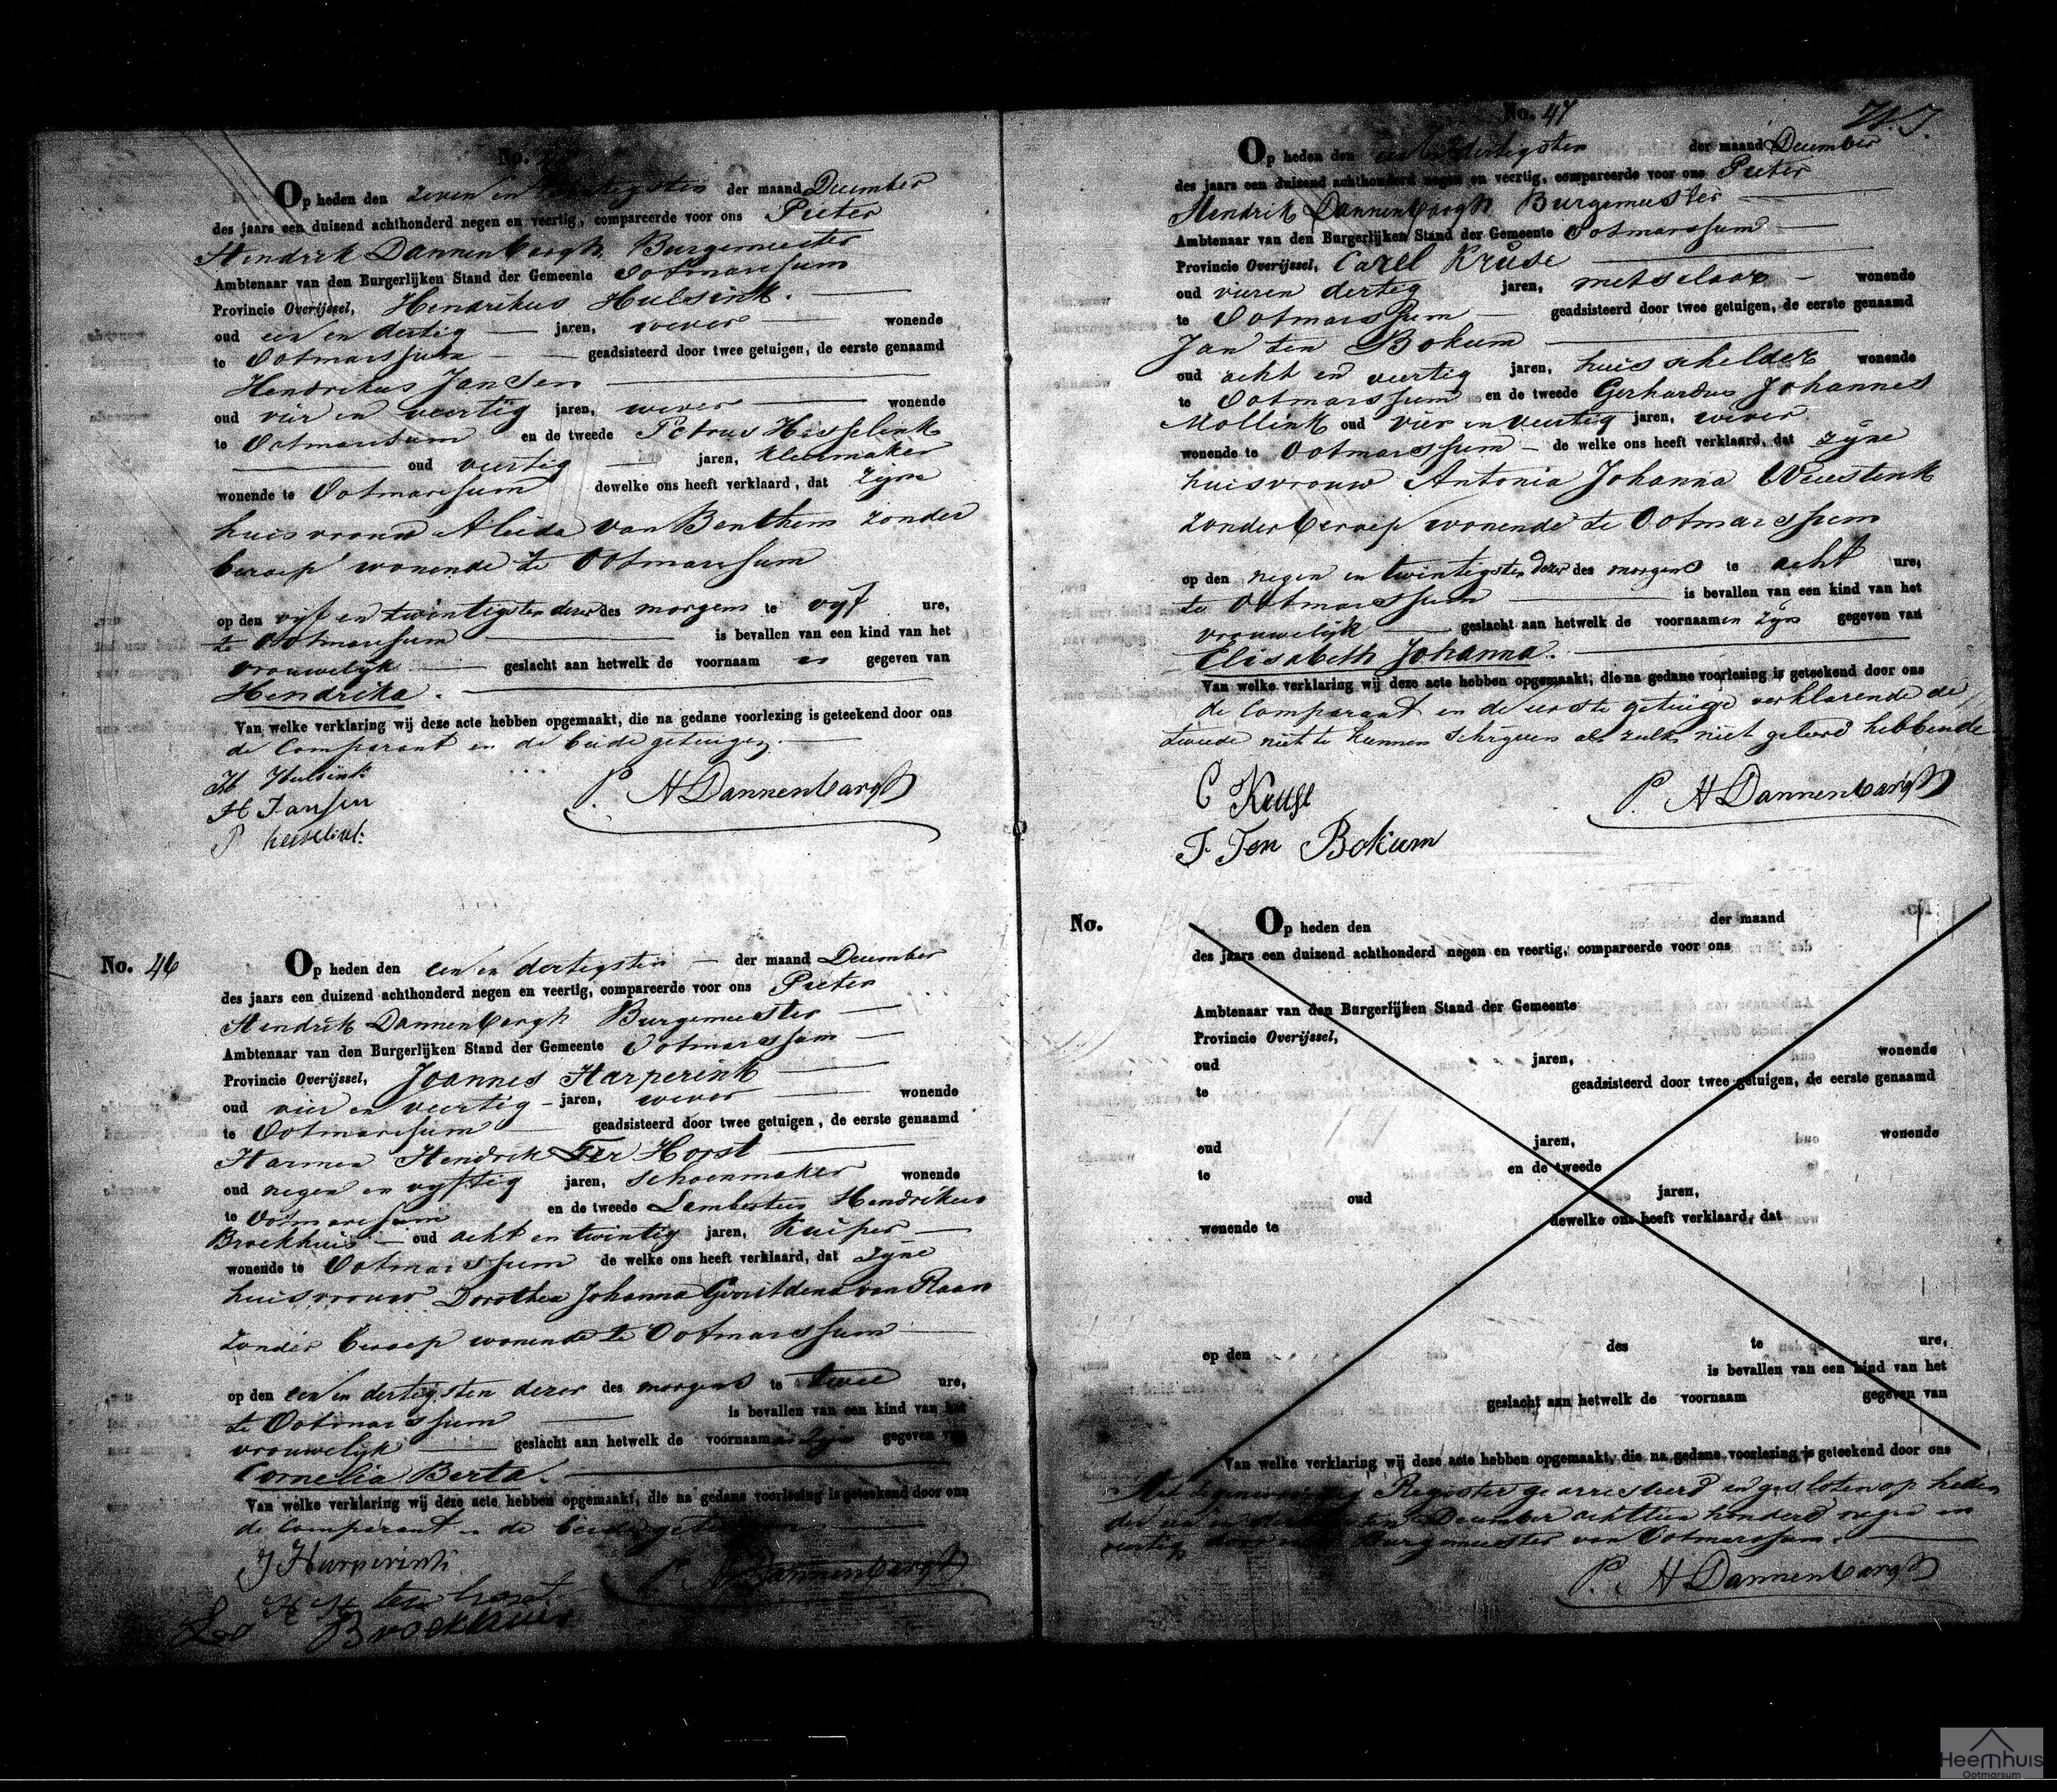 No.
Op heden den zeven en twintigsten der maand December
des jaars een duizend achthonderd negen en veertig, compareerde voor ons Pieter
Hendrik Dannenbargh Burgemeester
Ambtenaar van den Burgerlijken Stand der Gemeente Ootmarssum
Provincie Overijssel, Hendrikus Hulsink.
oud een en dertig jaren, wever wonende
te Ootmarssum geadsisteerd door twee getuigen, de eerste genaamd
Hendrikus Jansen
oud vier en veertig jaren, wever wonende
te Ootmarssum en de tweede Petrus Hesselink
oud veertig jaren, kleermaker
wonende te Ootmarssum dewelke ons heeft verklaard, dat zijne
huisvrouw Aleida van Benthem zonder
beroep wonende te Ootmarssum
op den vijf en twintigsten dezer des morgens te vijf ure,
te Ootmarssum is bevallen van een kind van het
vrouwelijk geslacht aan hetwelk de voornaam is gegeven van
Hendrika.
Van welke verklaring wij deze acte hebben opgemaakt, die na gedane voorlezing is geteekend door ons
de Comparant en de beide getuigen.
H Hulsink
H Jansen
P. H Dannenbargh
P hesselink
No. 46
Op heden den een en dertigsten der maand December
des jaars een duizend achthonderd negen en veertig, compareerde voor ons Pieter
Hendrik Dannenbargh Burgemeester
Ambtenaar van den Burgerlijken Stand der Gemeente Ootmarssum
Provincie Overijssel, Joannes Harperink
oud vier en veertig jaren, wever wonende
te Ootmarssum geadsisteerd door twee getuigen, de eerste genaamd
Harmen Hendrik Ter Horst
oud negen en vijftig jaren, schoenmaker wonende
te Ootmarssum en de tweede Lambertus Hendrikus
Broekhuis oud acht en twintig jaren, Kuiper
wonende te Ootmarssum de welke ons heeft verklaard, dat zijne
huisvrouw Dorothea Johanna Gerritdena van Raan
zonder beroep wonende te Ootmarssum
op den een en dertigsten dezer des morgens te twee ure,
te Ootmarssum is bevallen van een kind van het
vrouwelijk geslacht aan hetwelk de voornaamen zijn gegeven van
Cornelia Berta.
Van welke verklaring wij deze acte hebben opgemaakt, die na gedane voorlezing is geteekend door ons
de Comparant en de beide getuigen
J Harperink
P. H Dannenbargh
H H ter horst
Broekhuis
No. 47
Op heden den een en dertigsten der maand December
des jaars een duizend achthonderd negen en veertig, compareerde voor ons Pieter
Hendrik Dannenbargh Burgemeester
Ambtenaar van den Burgerlijken Stand der Gemeente Ootmarssum
Provincie Overijssel, Carel Kruse
oud vier en dertig jaren, metselaar wonende
te Ootmarssum geadsisteerd door twee getuigen, de eerste genaamd
Jan ten Bokum
oud acht en veertig jaren, huisschilder wonende
te Ootmarssum en de tweede Gerhardus Johannes
Mollink oud vier en veertig jaren, wever
wonende te Ootmarssum de welke ons heeft verklaard, dat zijne
huisvrouw Antonia Johanna Weustink
zonder beroep wonende te Ootmarssum
op den negen en twintigsten dezer des morgens te acht ure,
te Ootmarssum is bevallen van een kind van het
vrouwelijk geslacht aan hetwelk de voornaamen zijn gegeven van
Elisabeth Johanna.
Van welke verklaring wij deze acte hebben opgemaakt, die na gedane voorlezing is geteekend door ons
de Comparant en de eerste getuige verklarende de
tweede niet te kunnen schrijven als zulks niet geleerd hebbende
C Kruse
P. H Dannenbargh
J. Ten Bokum
No.
Op heden den der maand
des jaars een duizend achthonderd negen en veertig, compareerde voor ons
Ambtenaar van den Burgerlijken Stand der Gemeente
Provincie Overijssel,
oud jaren, wonende
te geadsisteerd door twee getuigen, de eerste genaamd
oud jaren, wonende
te en de tweede
oud jaren,
wonende te dewelke ons heeft verklaard, dat
op den des te ure,
is bevallen van een kind van het
geslacht aan hetwelk de voornaam gegeven van
Van welke verklaring wij deze acte hebben opgemaakt, die na gedane voorlezing is geteekend door ons
Register gearresteerd en gesloten op heden
December achttien honderd negen en
veertig door Burgemeester van Ootmarssum.
P. H Dannenbargh
Heemhuis
Ootmarsum